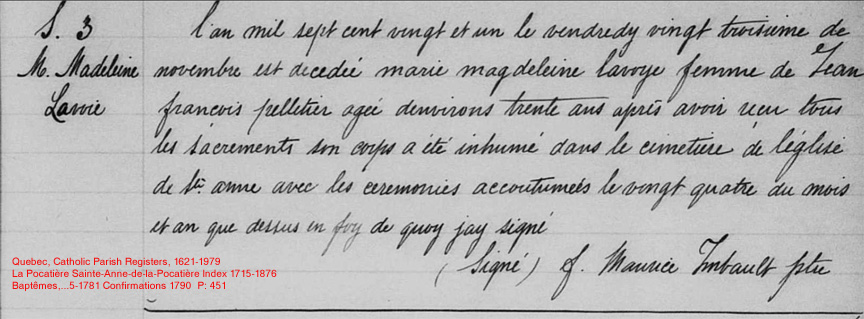 S. 3
M. Madeleine
Lavoie
l'an mil sept cent vingt et un le vendredy vingt troisieme de
novembre est decedeé marie magdeleine lavoye femme de Jean
francois pelletier ageé denvirons trente ans aprés avoir recu tous
les sacrements son corps a été inhumé dans le cimetiere de léglise
de Ste anne avec les ceremonies accoutumeés le vingt quatre du mois
et an que dessus en foy de quoy jay signé
(Signé) f. Maurice Imbault ptre
Quebec, Catholic Parish Registers, 1621-1979
La Pocatière Sainte-Anne-de-la-Pocatière Index 1715-1876
Baptêmes,...5-1781 Confirmations 1790 P: 451